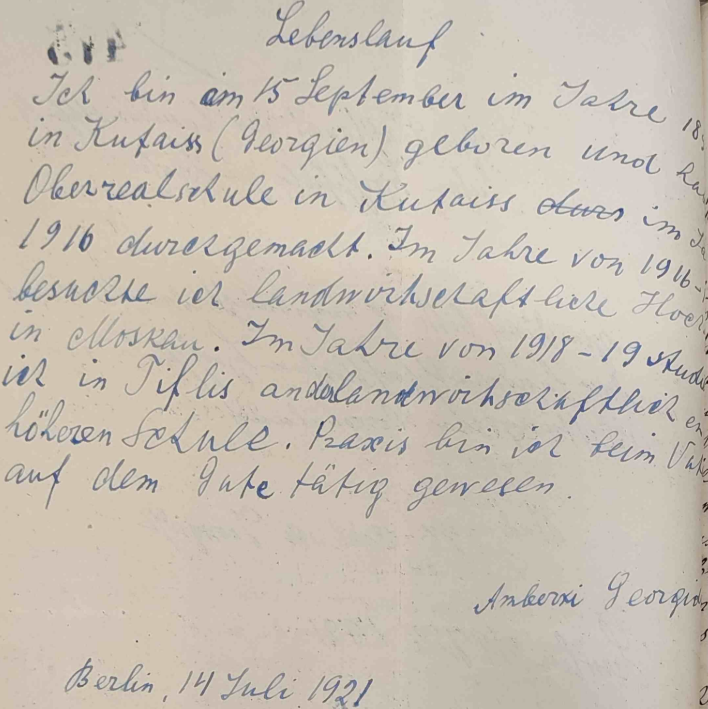 413
Lebenslauf
Ich bin am 15 September im Jahre 18
in Kutaiss (Georgien) geboren und
Oberrealschule in Kutaiss durs im
1916 durchgemacht. Im Jahre von 1916-
besuchte ich landwirtschaftliche Hoch
in Moskau. Im Jahre von 1918-19 stud
ich in Tiflis an der landwirtschaftlich en
höheren Schule. Praxis bin ich beim Vate
auf dem Gute tätig gewesen.
Georgi
Berlin, 14 Juli 1921